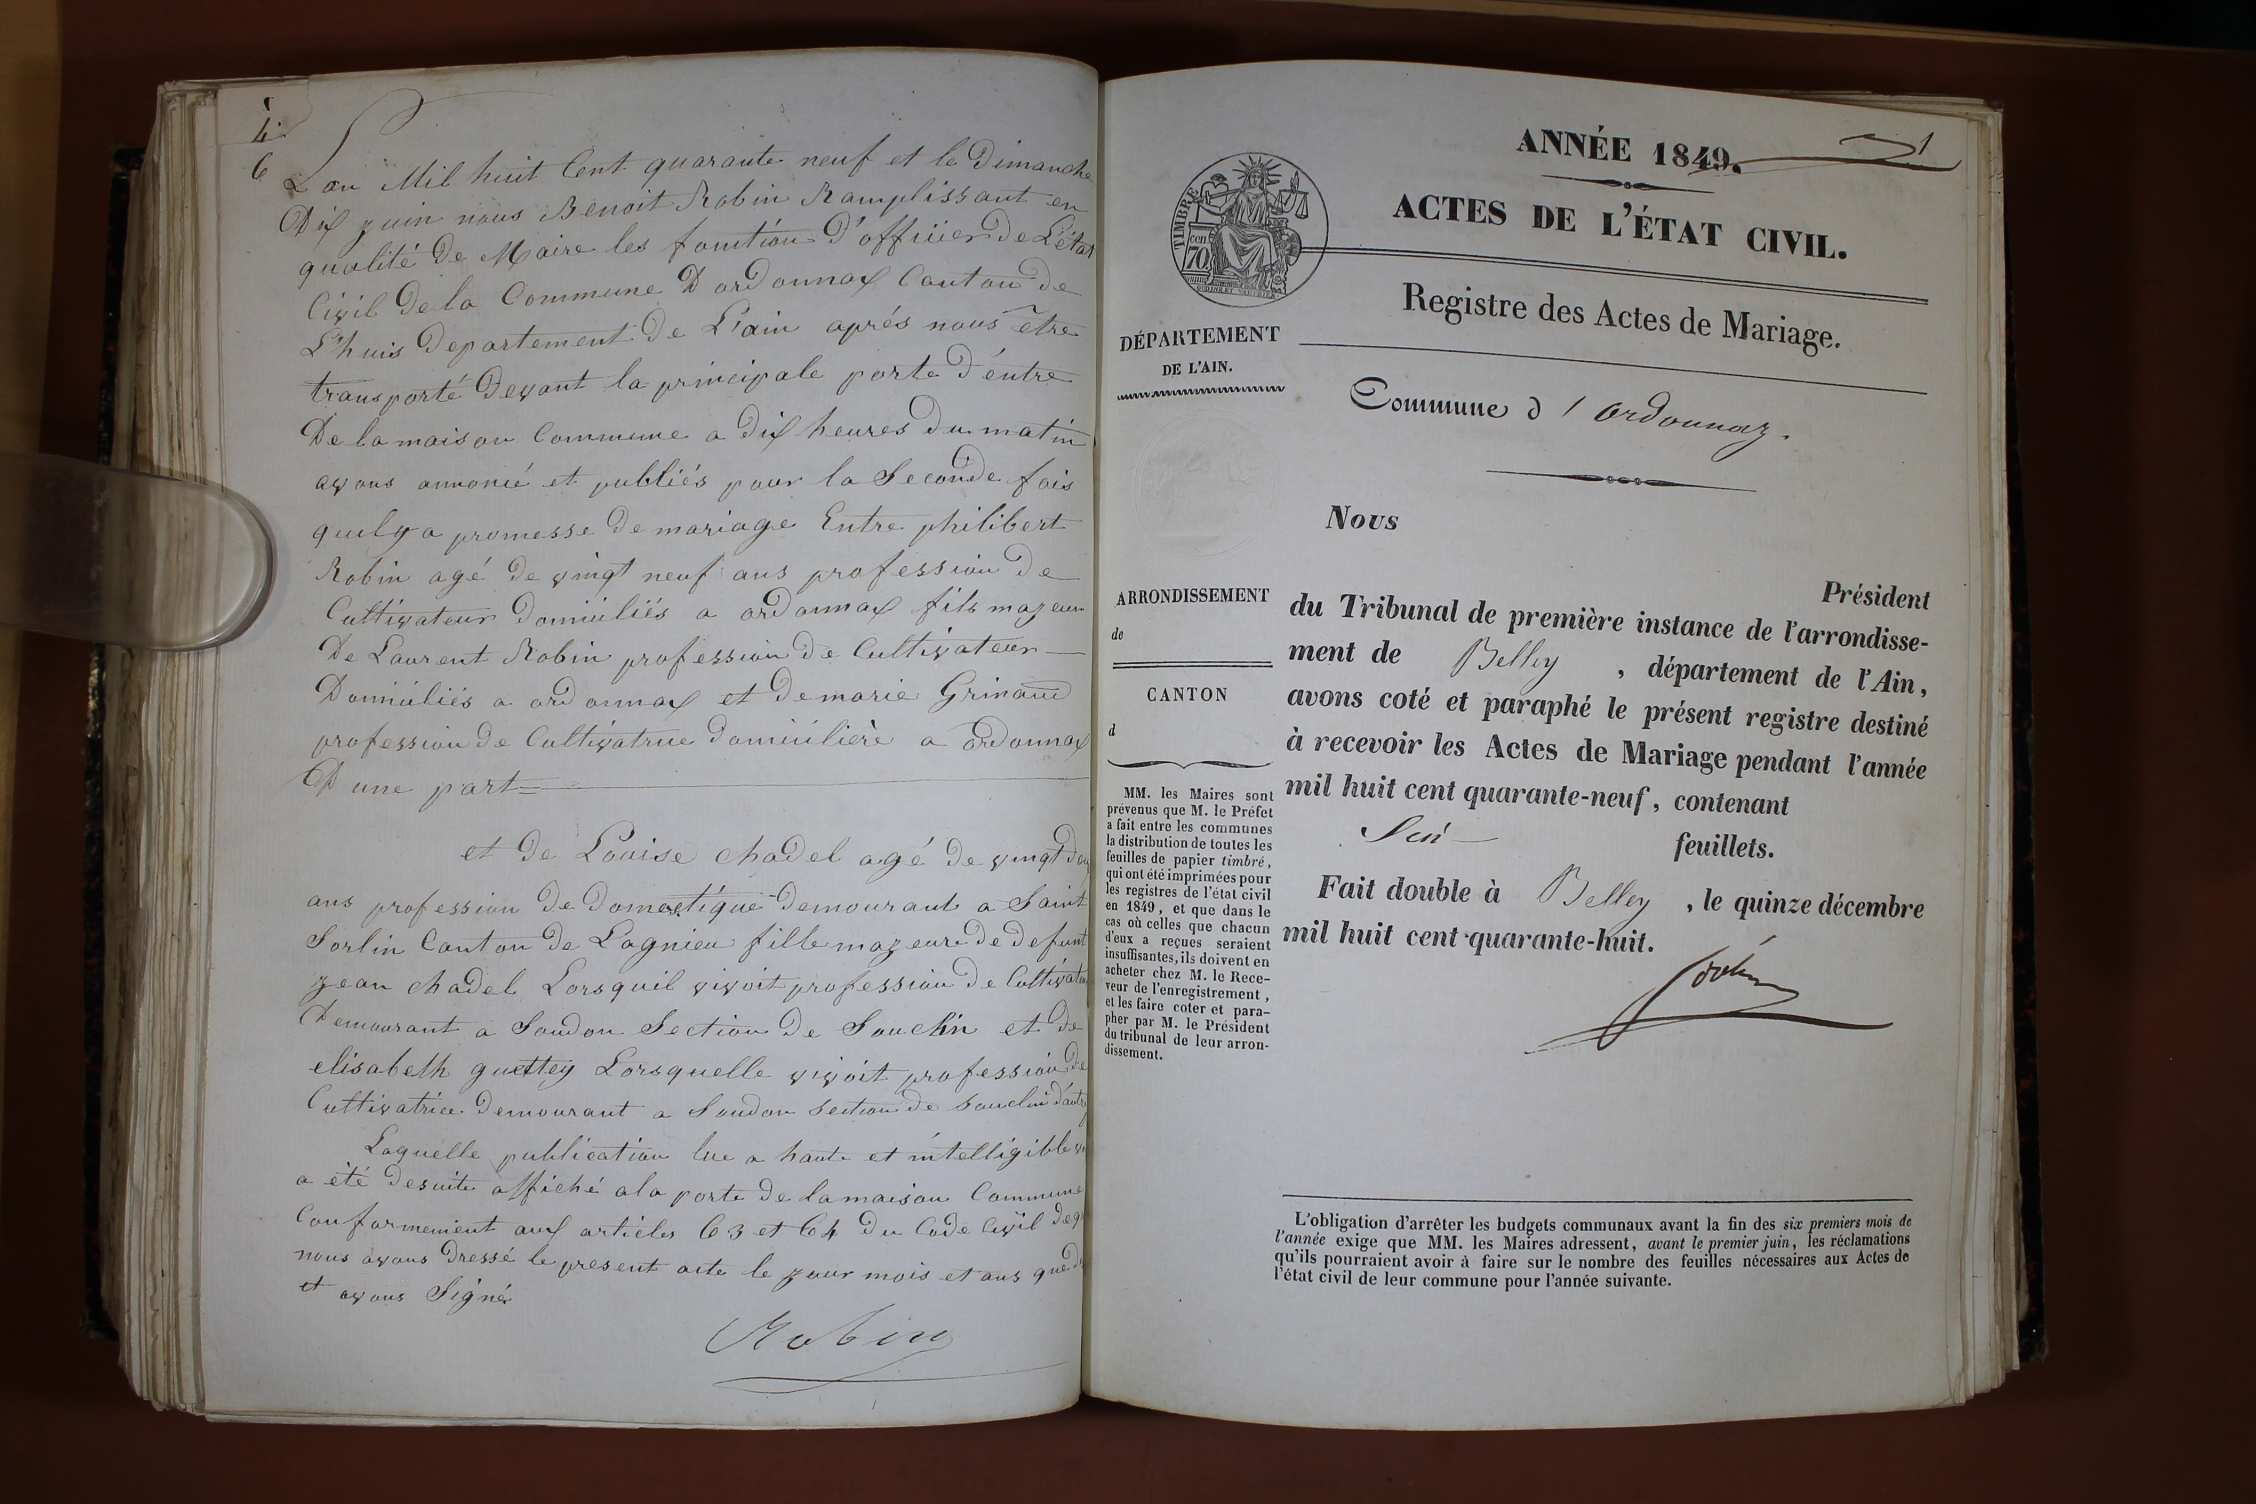 4
6
L an Mil huit Cent quarante neuf et le Dimanche
Dix juin nous Benoit Robin Ramplissant en
qualité de Maire les fonction d'officier de L'état
Civil de la Commune D ordonnax Canton de
L'huis departement de L'ain aprés nous être
transporté devant la principale porte d'éntre
De la maison Commune a dix heures du matin
avons annoncé et publiés pour la Seconde fois
quil y a promesse de mariage Entre philibert
Robin agé de vingt neuf ans profession de
Cultivateur domiciliés a ordonnax fils majeur
De Laurent Robin profession de Cultivateur
Domiciliés a ordonnax et de marie Grinand
profession de Cultivatrice domicilière a ordonnax
D une part
et de Louise chadel agé de vingt
ans profession de domestique demourant a Saint
Sorlin Canton de Lagnieu fille majeure de defunt
jean chadel Lorsquil vivoit profession de
Demourant a Soudon Section de Souclin et de
elisabeth guettey Lorsquelle vivoit profession de
Cultivatrice demourant a Soudon Section de Souclin
Laquelle publication lue a haute et intelligible
a été desuite affiché a la porte de la maison Commune
Conformement aux articles 63 et 64 du Code Civil
nous avons dressé le present acte le jour mois et ans que
et avons Signé
Robin
1
ANNÉE 1849.
ACTES DE L'ÉTAT CIVIL.
Registre des Actes de Mariage.
TIMBRE
cen
70
DÉPARTEMENT
DE L'AIN.
Commune d'ordonnaz.
Nous
Président
du Tribunal de première instance de l'arrondisse-
ment de Belley , département de l'Ain,
avons coté et paraphé le présent registre destiné
à recevoir les Actes de Mariage pendant l'année
mil huit cent quarante-neuf, contenant
feuillets.
Fait double à Belley , le quinze décembre
mil huit cent quarante-huit.
ARRONDISSEMENT
de
CANTON
d
MM. les Maires sont
prévenus que M. le Préfet
a fait entre les communes
la distribution de toutes les
feuilles de papier timbré,
qui ont été imprimées pour
les registres de l'état civil
en 1849, et que dans le
cas où celles que chacun
d'eux a reçues seraient
insuffisantes, ils doivent en
acheter chez M. le Rece-
veur de l'enregistrement,
et les faire coter et para-
pher par M. le Président
du tribunal de leur arron-
dissement.
L'obligation d'arrêter les budgets communaux avant la fin des six premiers mois de
l'année exige que MM. les Maires adressent, avant le premier juin, les réclamations
qu'ils pourraient avoir à faire sur le nombre des feuilles nécessaires aux Actes de
l'état civil de leur commune pour l'année suivante.